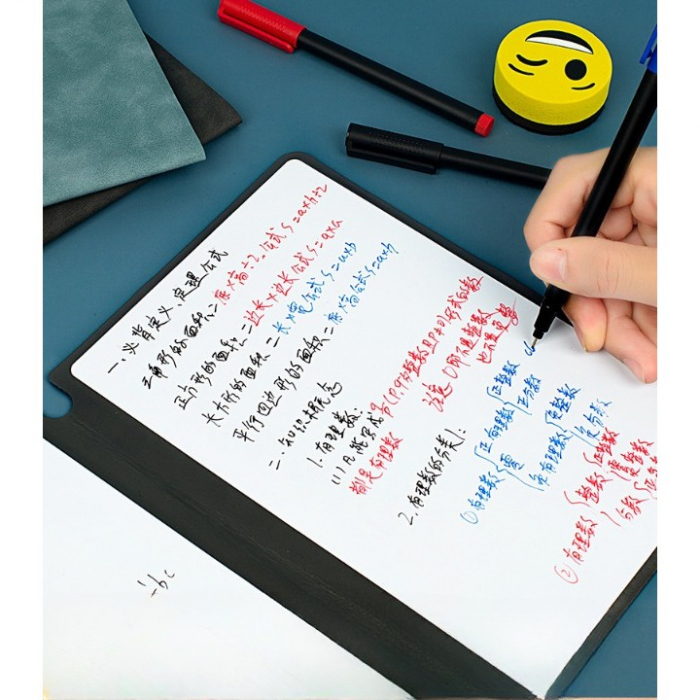 一、必背定义、定理公式
三角形的面积=底×高÷2 公式S=a×h÷2
正方形的面积=边长×边长 公式S=a×a
长方形的面积=长×宽 公式S=a×b
平行四边形的面积=底×高 公式S=a×h
二、知识概念
1、有理数:
(1)凡能写成 q/p (p,q为整数且p≠0)形式的数
都是有理数 注意:0即不是正数 也不是负数
2、有理数的分类:
①有理数 正有理数 正整数 正分数
零
负有理数 负整数 负分数
②有理数 整数 正整数 零 负整数
分数
-bc